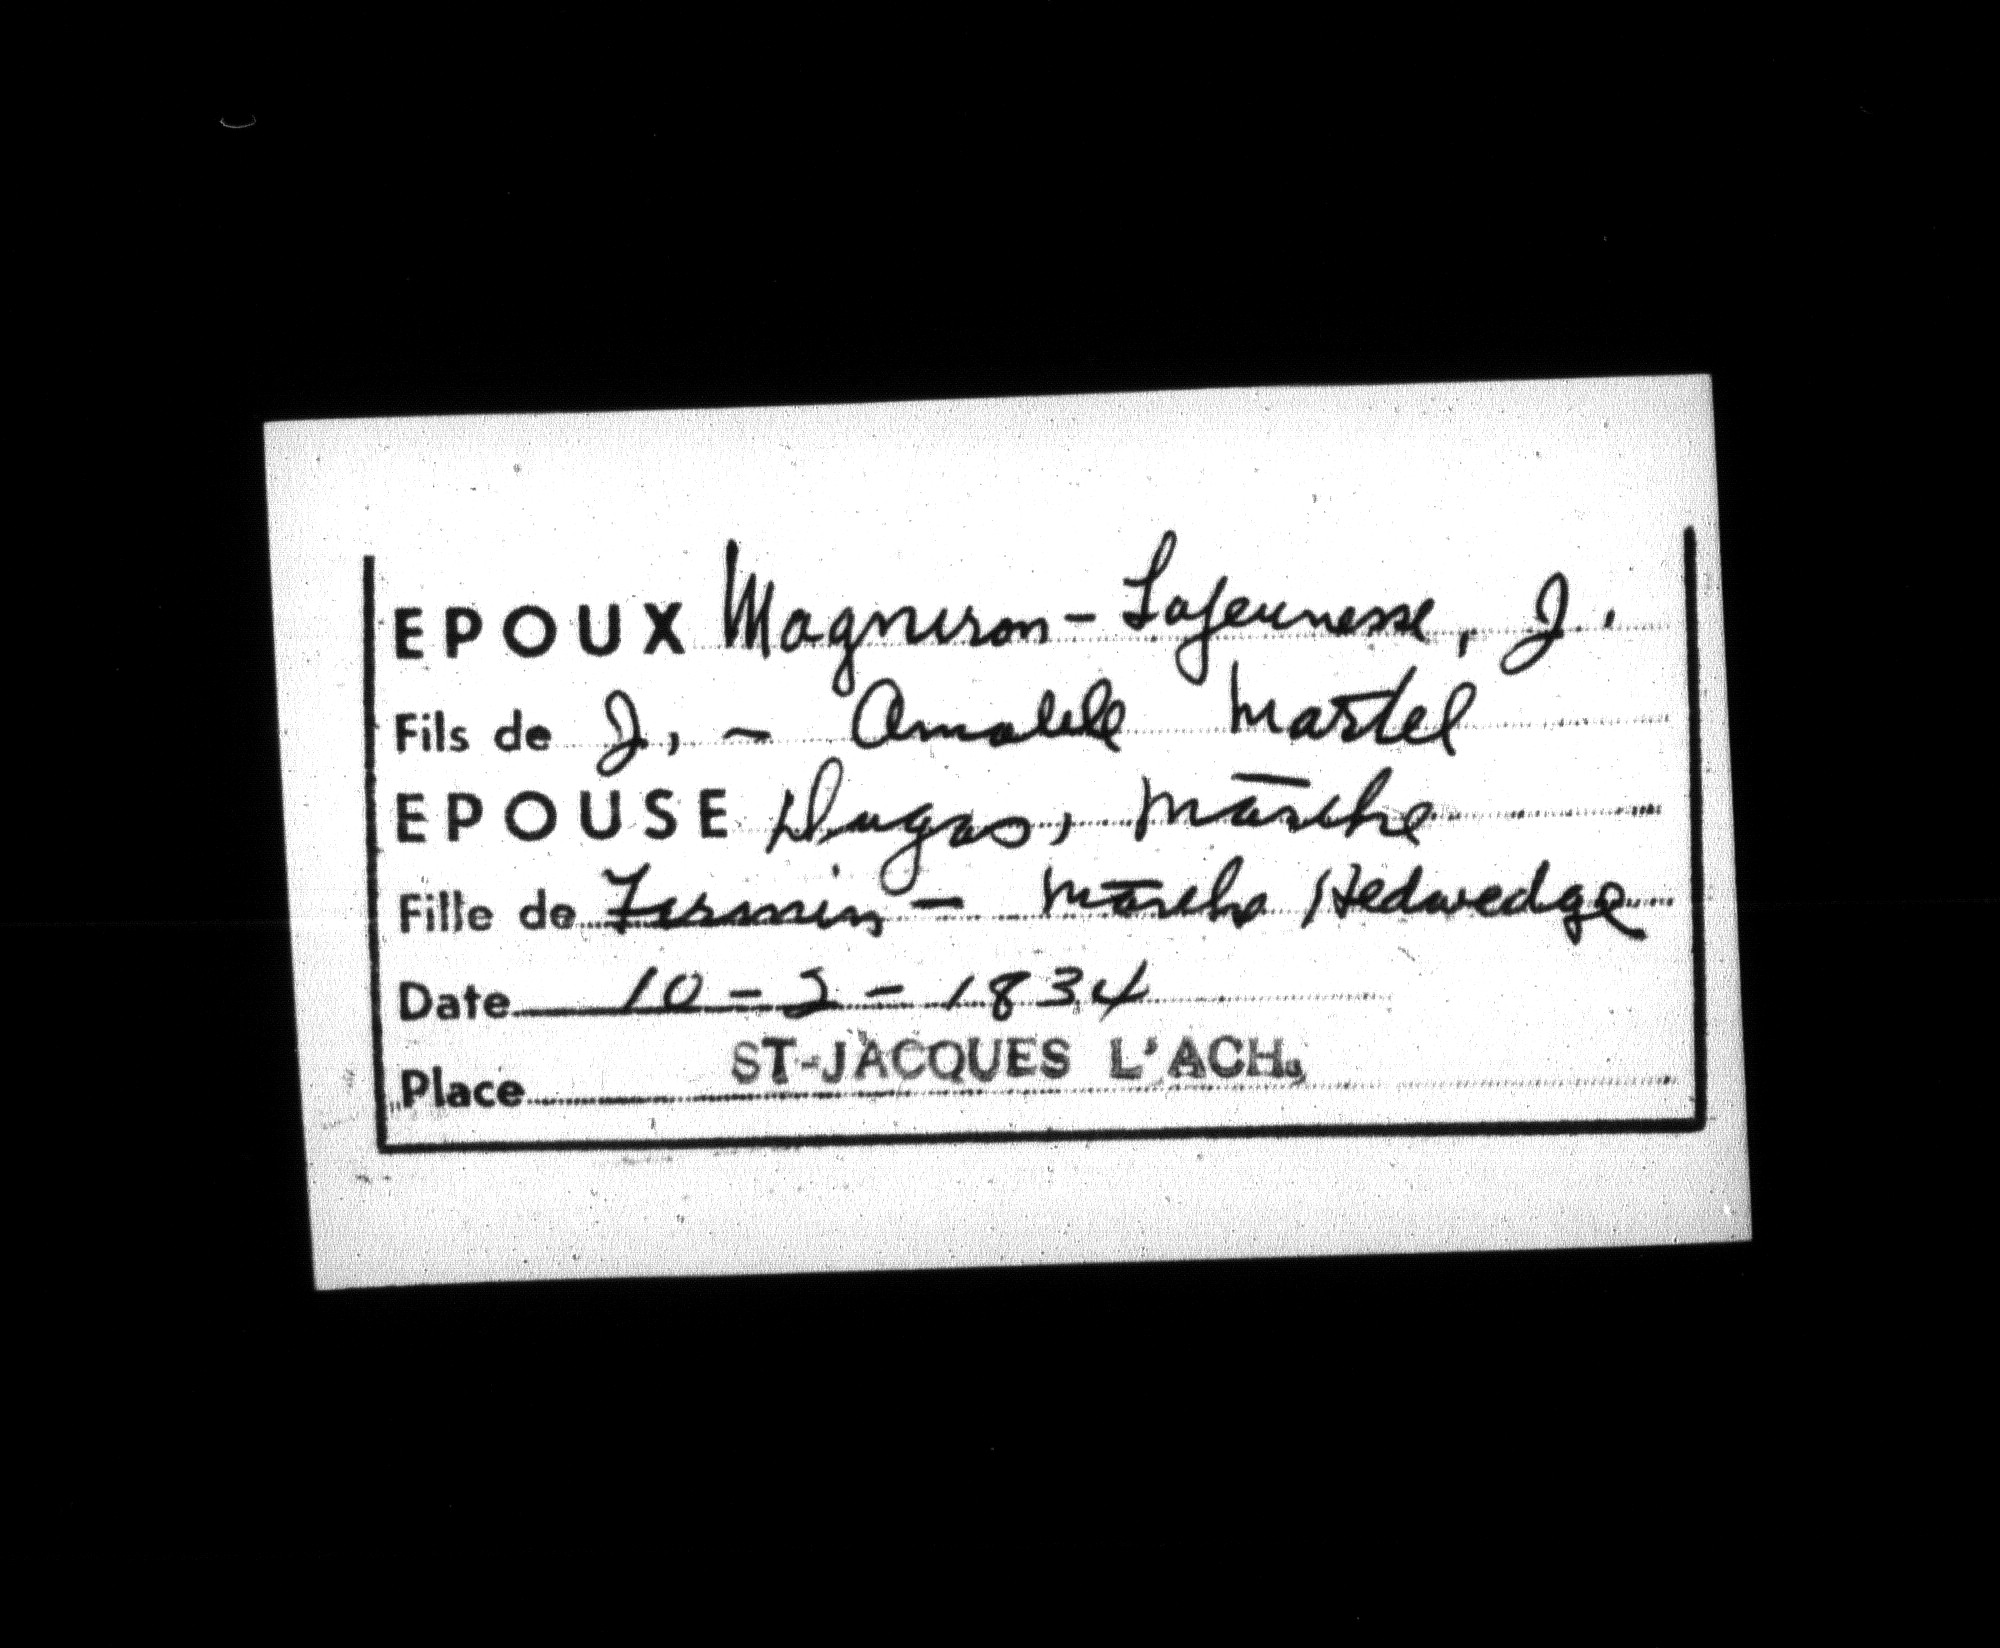 EPOUX Magniron-Lajeunesse, J.
Fils de J, - Amable Martel
EPOUSE Dugas, Marthe
Fille de Firmin - Marthe Hedwedge
Date 10-2-1834
Place ST-JACQUES L'ACH.